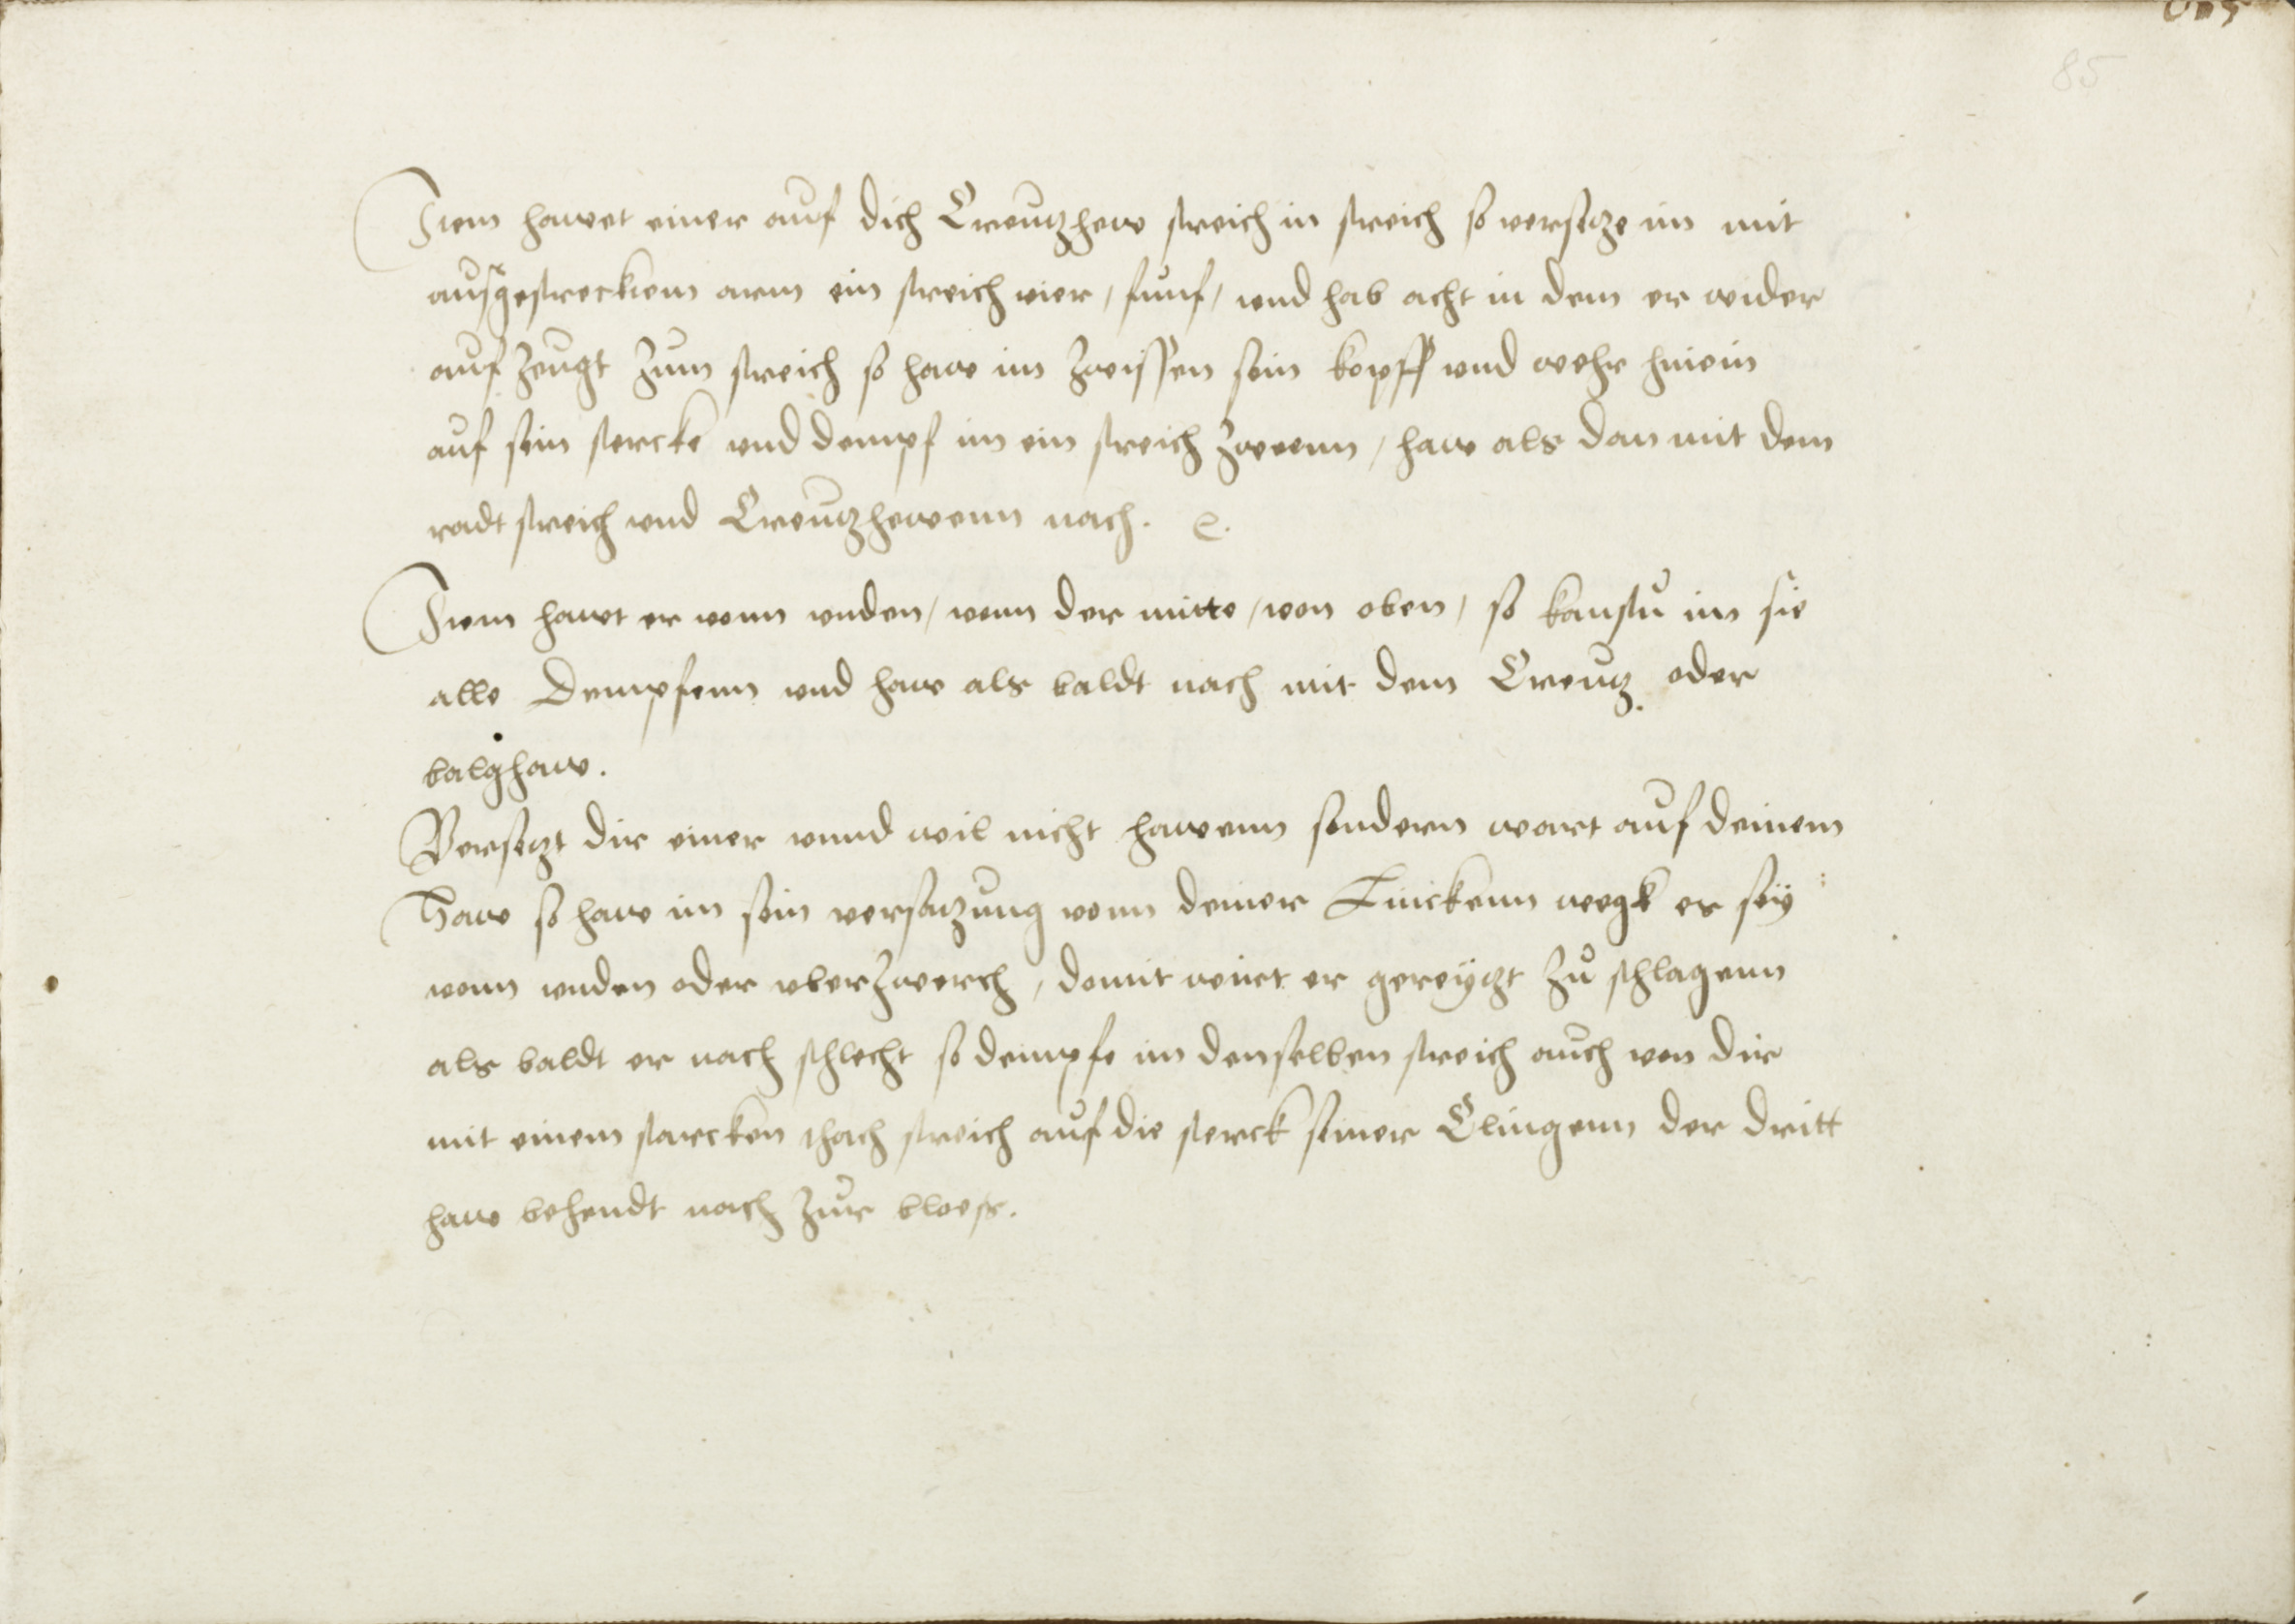 85
Item hawet einer auf dich Creutzhew streich in streich so versetze im mit
ausgestrecktem arm ein streich vier / funf / und hab acht in dem er wider
auf zeugt zum streich so haw im zwissen sein kopff und wehr hinein
auf sein stercke und dempf im ein streich zweenn / haw als dan mit dem
radt streich und Creutzhewenn nach. e.
Item hawt er vonn unden / vonn der mitte / von oben / so kanstu im sie
alle Dempfenn und haw als baldt nach mit dem Creutz oder
balghaw.
Versetzt dir einer unnd wil nicht hawenn sondern wart auf deinem
Haw so haw im sein versatzung vonn deiner Linckenn wegk es seÿ
vonn unden oder uberzwerch / domit wirt er gereÿtzt zů schlagenn
als baldt er nach schlecht so dempfe im denselben streich auch von dir
mit einem starcken thach streich auf die sterck seiner Clingenn der dritt
haw behendt nach zur bloess.